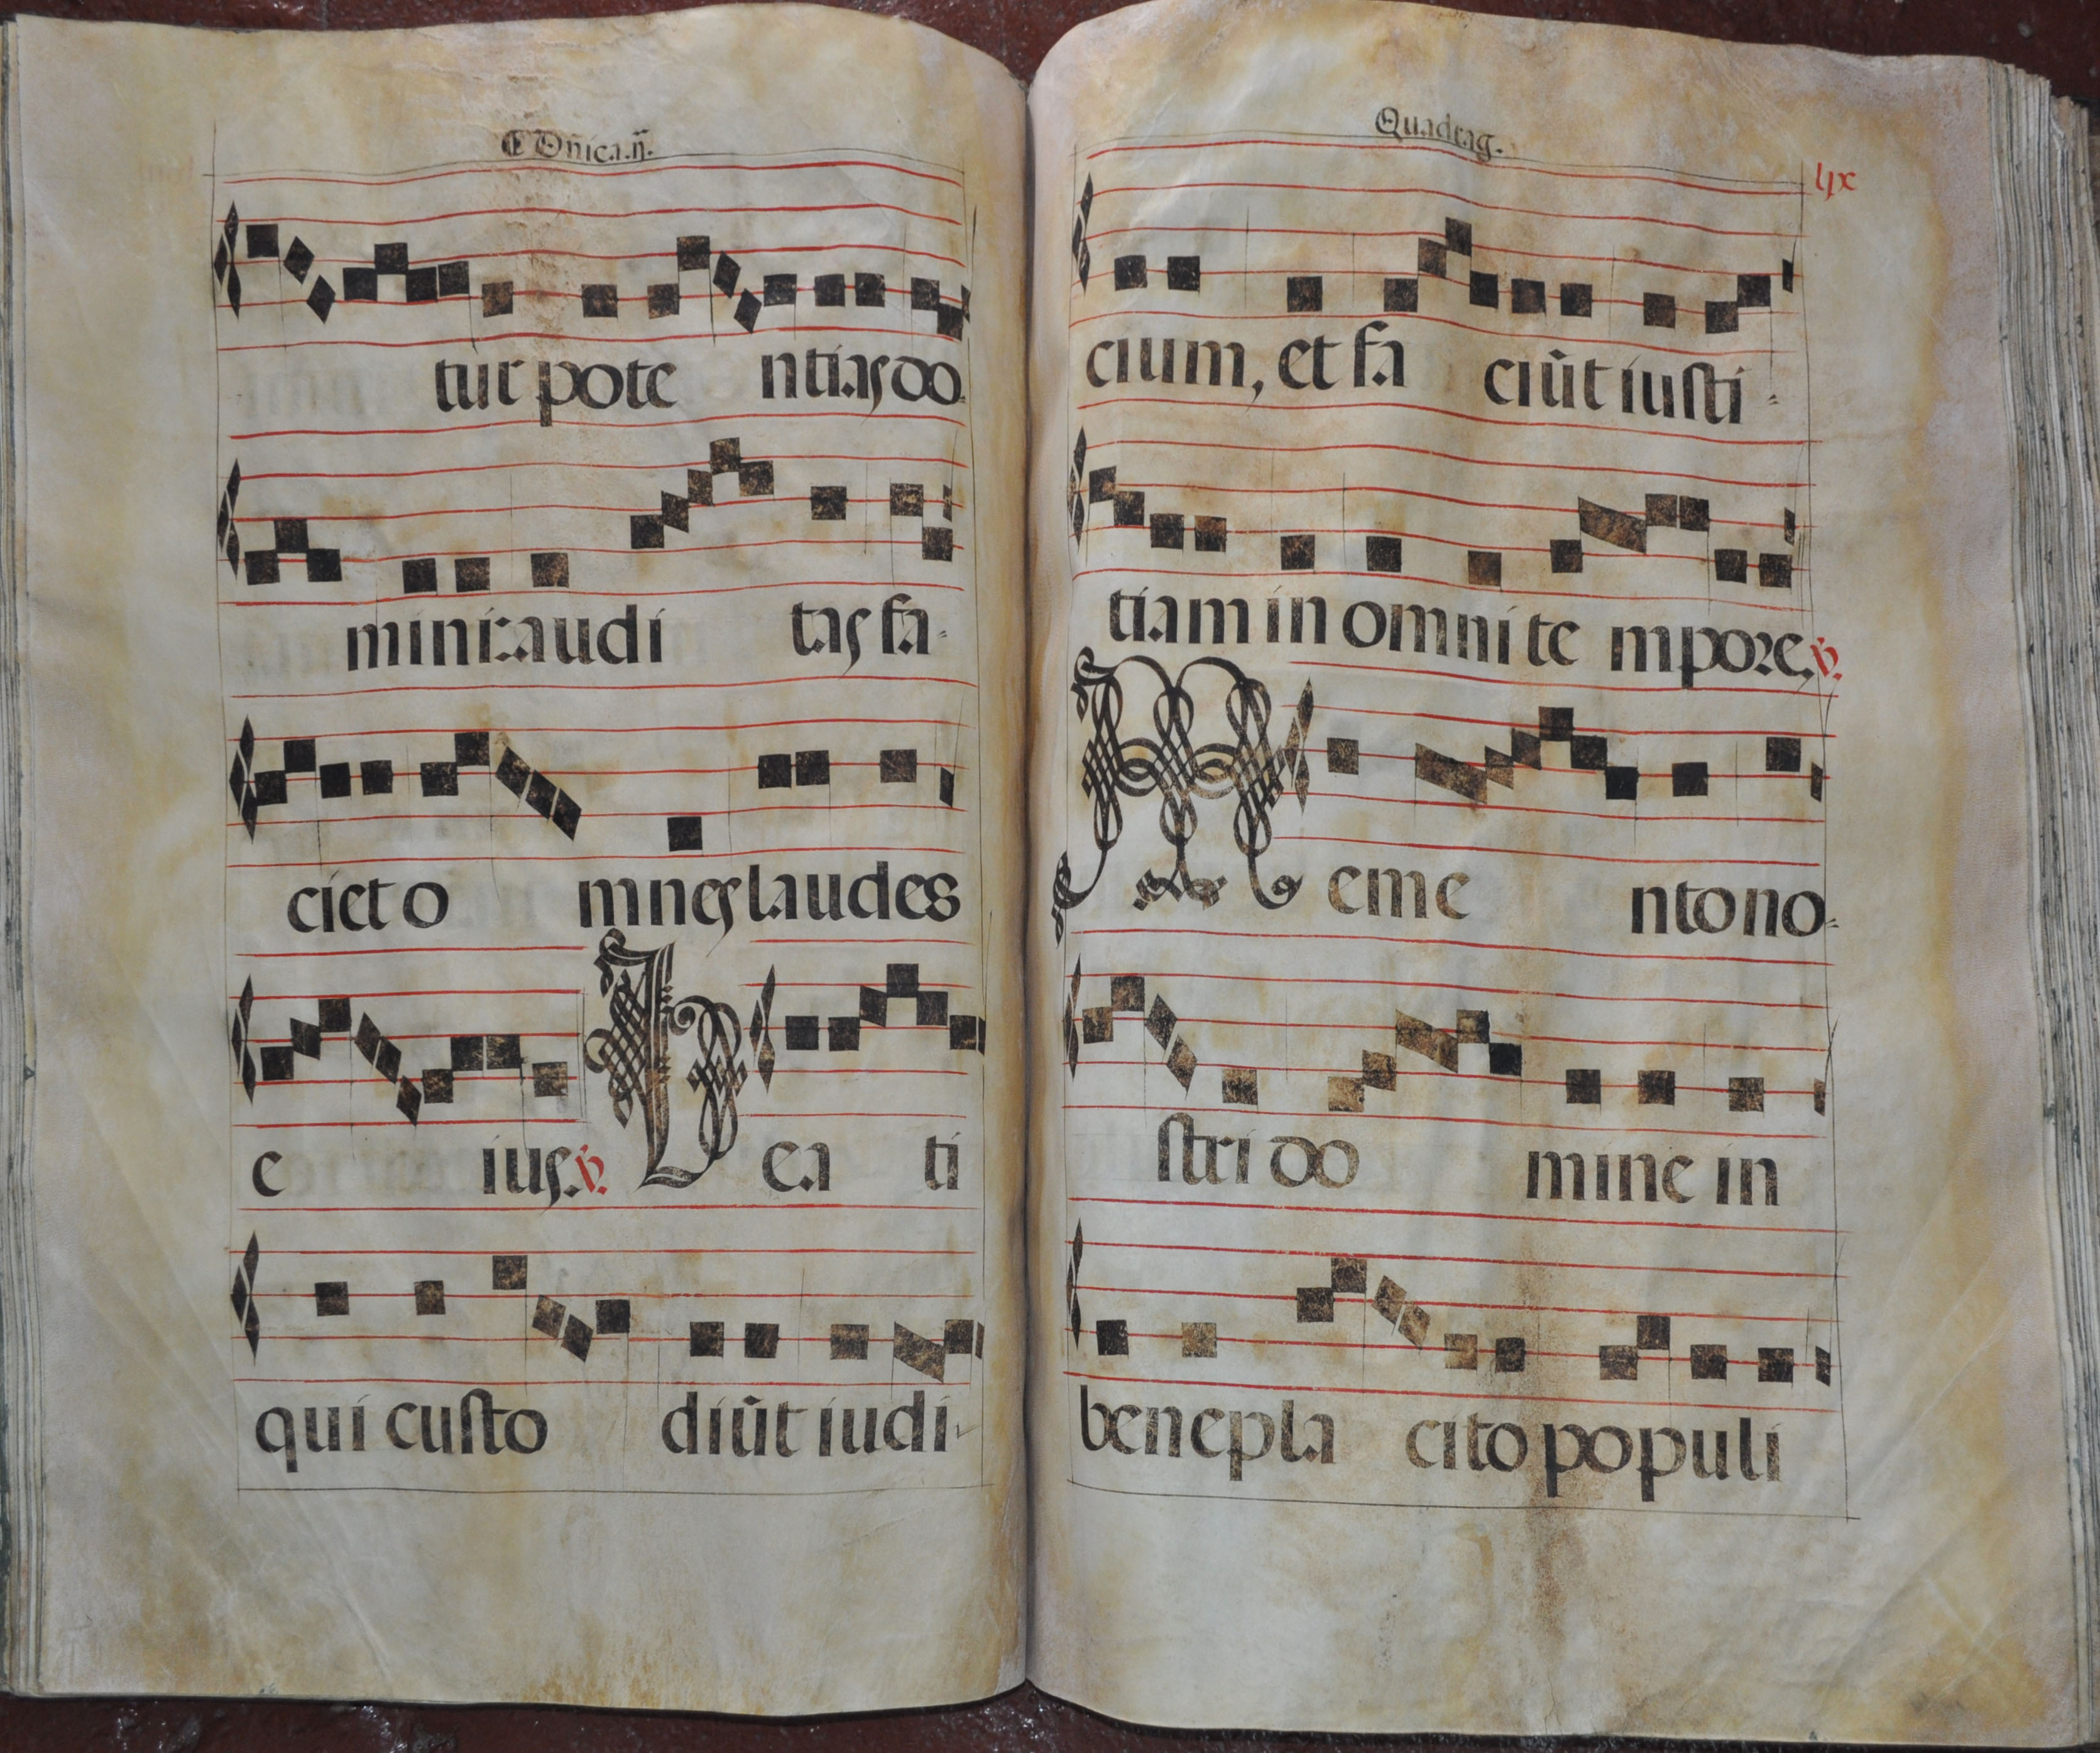 ¶ Dñica.ii.
tur pote ntias do
mini: audi tas fa-
ciet o mnes laudes
e ius. ℣. Bea ti
qui custo diūt iudi-
Quadrag.
lix
cium, et fa ciūt iusti-
tiam in omni te mpore, ℣.
Meme nto no-
stri do mine in
benepla cito populi